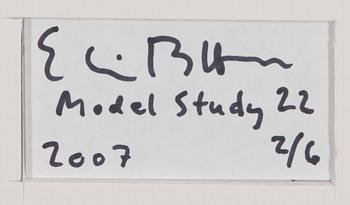 Model Study 22
2007 2/6